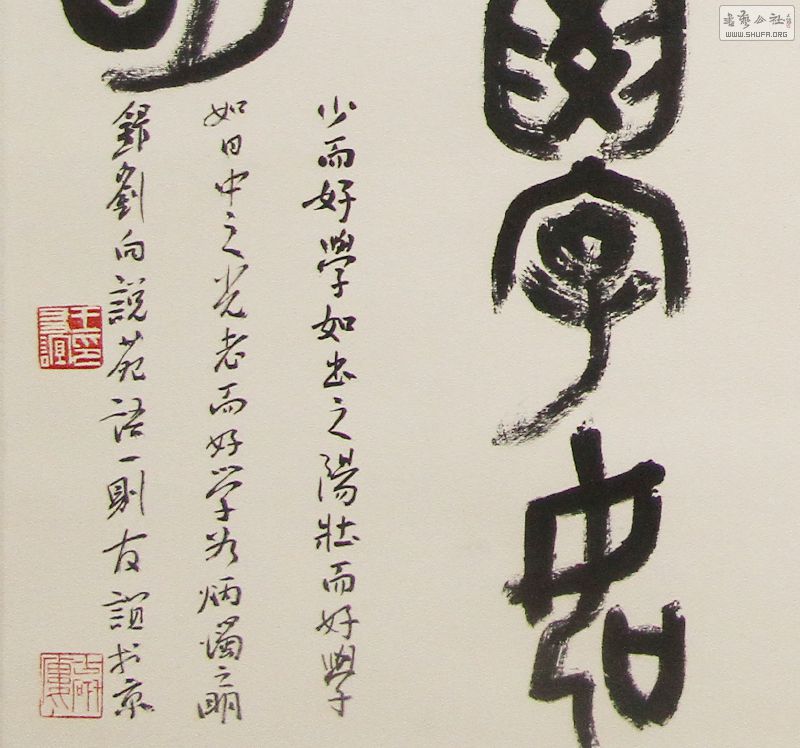 學如
少而好學如出之陽壯而好學
如日中之光老而好学炳燭之明
錄劉向說苑語一則友誼於京
王友誼印
書藝公社
WWW.SHUFA.ORG